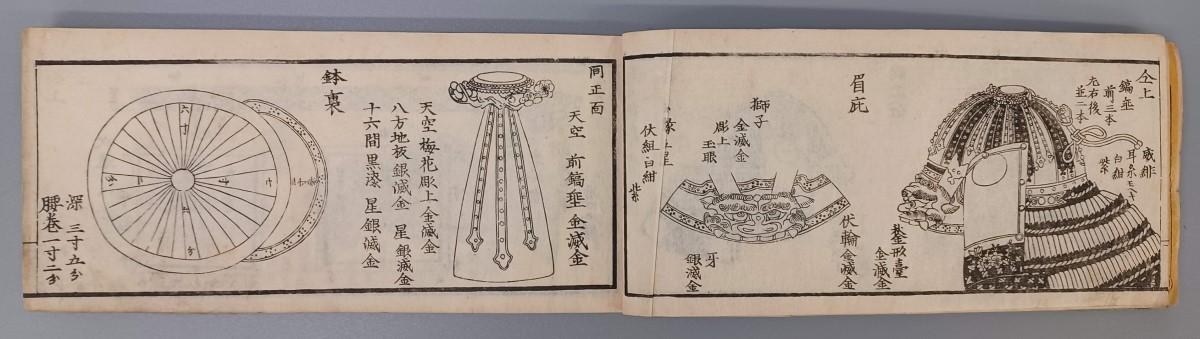 仝上
鎬垂
前三本
左右後
並二本
威緋
白紺
紫
鍬形臺
金滅金
眉庇
獅子
金滅金
彫上
玉眼
伏輪金滅金
牙
銀滅金
伏組白紺
紫
同正面
天空 前鎬垂 金滅金
天空 梅花彫上金滅金
八方地板銀滅金 星銀滅金
十六間黒漆 星銀滅金
鉢裏
六寸
深 三寸五分
腰巻一寸二分